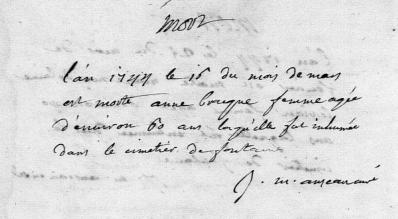 mort
L'an 1744 le 16 du mois de mars
est morte anne bougue femme agée
d'environ 60 ans laquelle fut inhumée
dans le cimetier de fontaine
J. m.